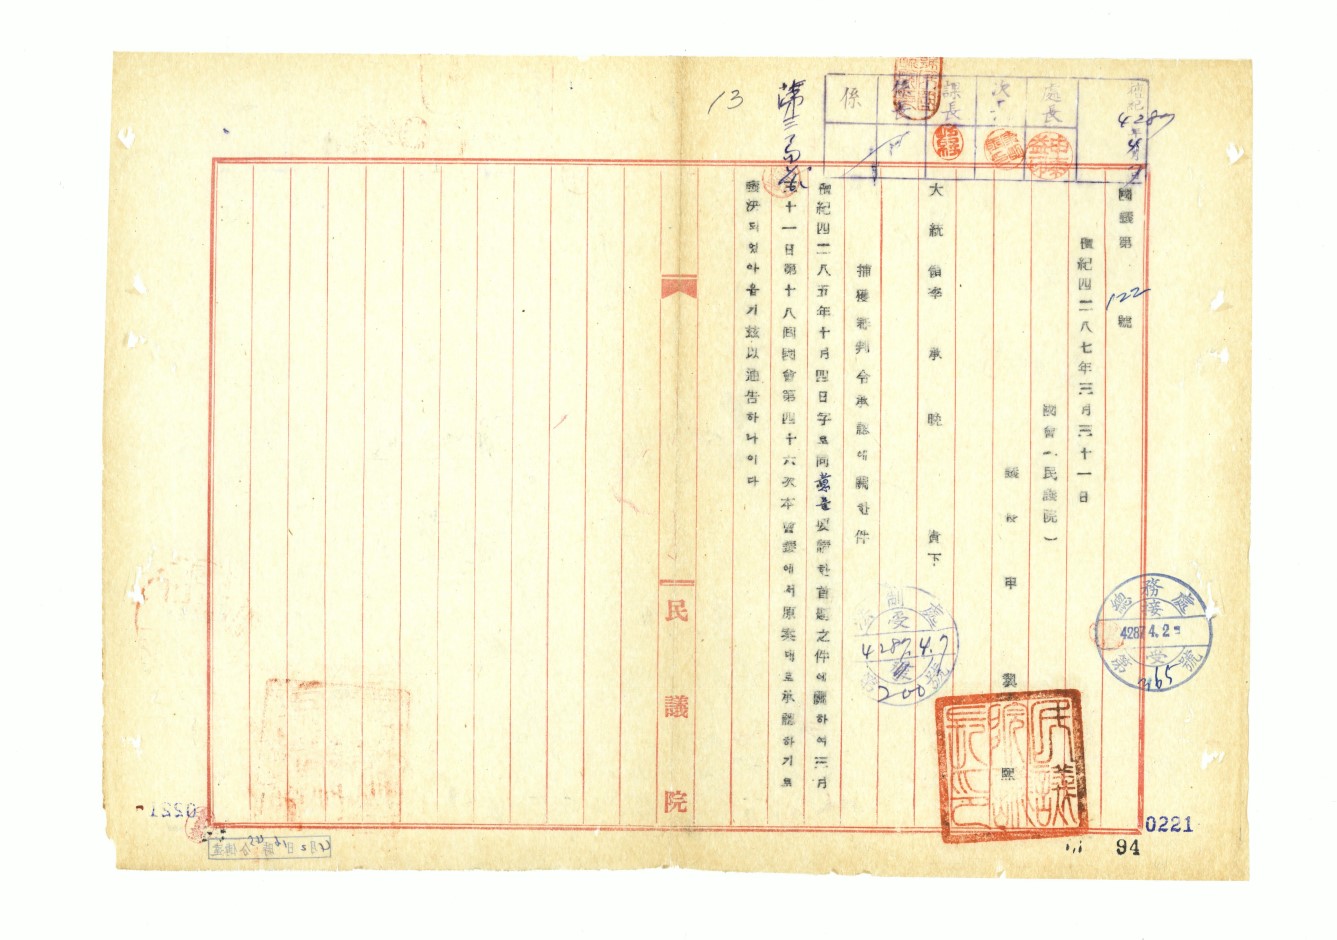 國議第 122 號
檀紀四二八七年三月三十一日
國會(民議院)
議長 申 翼 熙
大統領 李承晩 貴下
捕獲審判令承認에關한件
檀紀四二八五年十月四日字로同 을 要請한首題之件에關하여三月
三十一日第十八回國會第四十六次本會議에서原案대로承認하기로
議決되었아옵기玆以通告하나이다
檀紀 4287年
處長
次長
課長
係長
係
13
民議院
民議院議長之印
總務處
接受
4287 4. 2
第 號
法制處
受
4287. 4. 7
200
0221
94